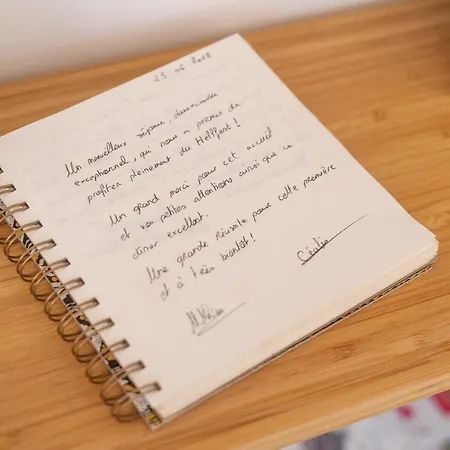 25 06 2018
Un merveilleux séjour, dans un cadre
exceptionnel, qui nous a permis de
profiter pleinement du Hellfest !
Un grand merci pour cet accueil
et vos petites attentions ainsi que ce
dîner excellent.
Une grande réussite pour cette première
et à très bientôt !
Cécilia